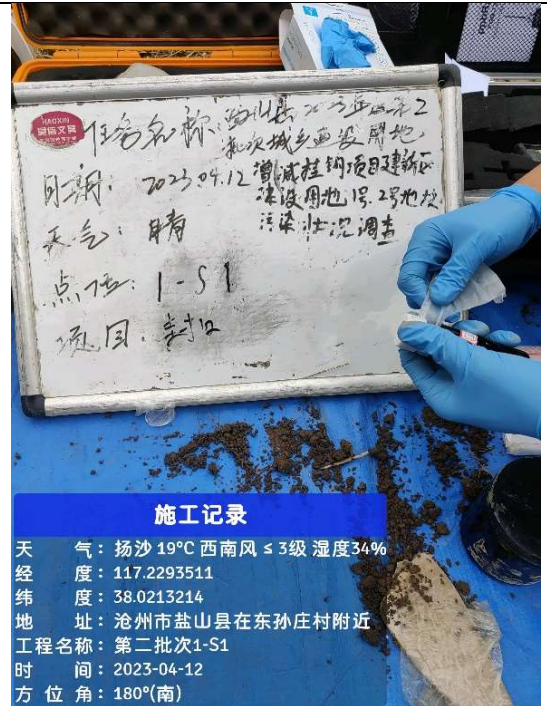 HAOXIN
任务名称:盐山县2023年度第2
批次城乡建设用地
日期: 2023.04.12 增减挂钩项目建新区
建设用地1号.2号地块
天气: 晴
污染状况调查
点位: 1-S1
项目: 封口
施工记录
天 气:扬沙 19℃ 西南风 ≤ 3级 湿度34%
经 度:117.2293511
纬 度:38.0213214
地 址:沧州市盐山县在东孙庄村附近
工程名称:第二批次1-S1
时 间:2023-04-12
方 位 角:180°(南)